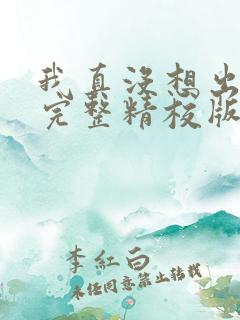 我真没想出
完整精校版
李红白
未经同意禁止转载